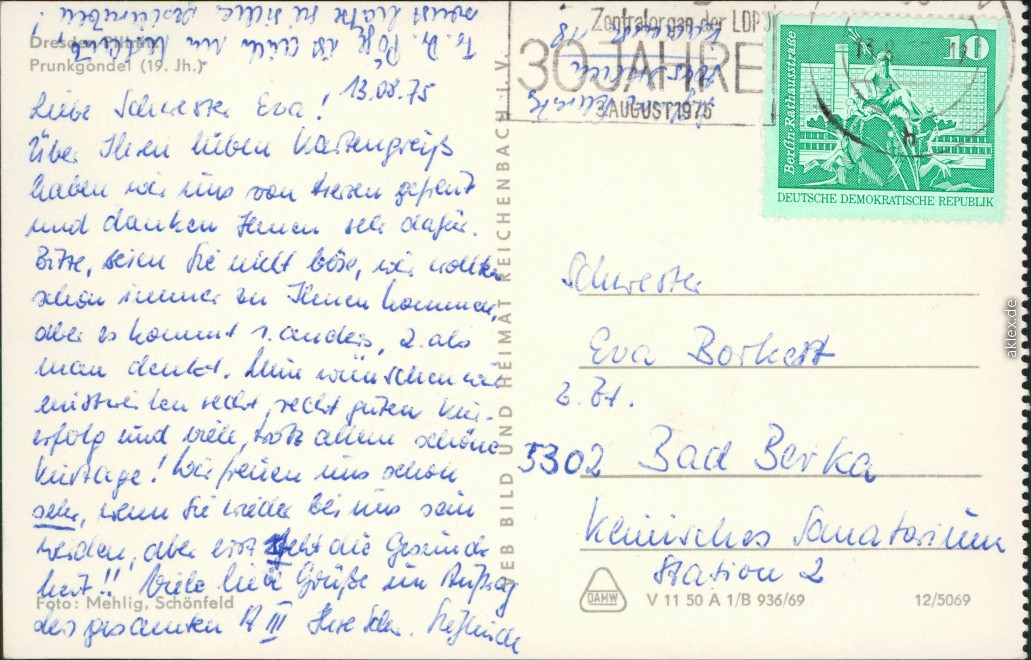 Dresden-Pillnitz
Prunkgondel (19. Jh.)
13.08.75
Liebe Schwester Eva!
Über Ihren lieben Kartengruß
haben wir uns von Herzen gefreut
und danken Ihnen sehr dafür.
Bitte, seien Sie nicht böse, wir wollten
schon immer zu Ihnen kommen,
aber es kommt 1. anders, 2. als
man denkt. Nun wünschen wir
einstweilen recht, recht guten Kur-
erfolg und viele, trotz allem schöne
Kurtage! Wir freuen uns schon
sehr, wenn Sie wieder bei uns sein
werden, aber erst geht die Gesund-
heit!! Viele liebe Grüße im Auftrag
des gesamten
III Ihre Schw.
Foto: Mehlig, Schönfeld
VEB BILD UND HEIMAT REICHENBACH I. V.
Zentralorgan der LDPD
30 JAHRE
3. AUGUST 1975
10
Berlin-Rathausstraße
DEUTSCHE DEMOKRATISCHE REPUBLIK
Schwester
Eva Borkert
z. Zt.
5302 Bad Berka
Klinisches Sanatorium
Station 2
DAMW
V 11 50 A 1/B 936/69
12/5069
aklex.de